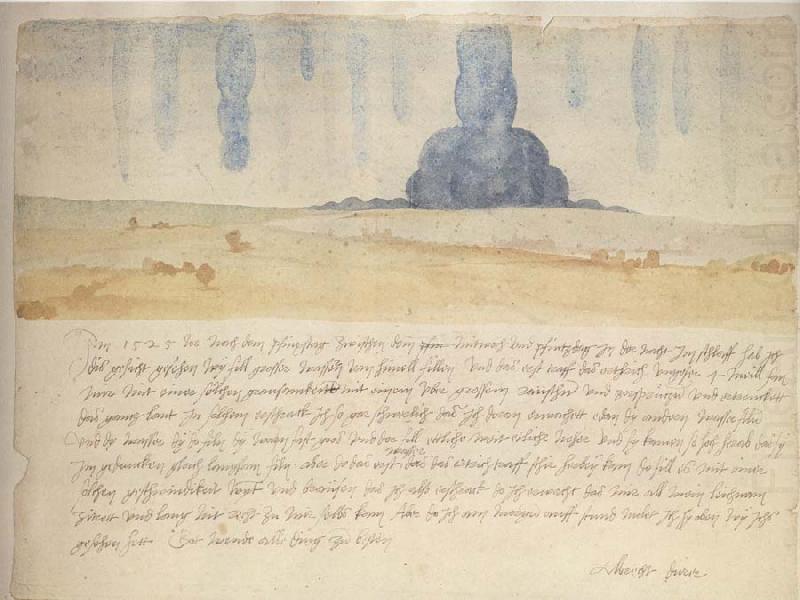 Im 1525 Jor nach dem pfinxstag zwischen dem mitwoch und pfintzdag in der nacht im schlaff hab ich
dis gesicht gesehen wy fill grosser wassern vom himell fillen Und das erst traff das erthrich ungefer 4 meill fan
mir mit einer solchen grausamkeitt mit einem uber grossem raüschn und zersprützn und ertrenckett
das gancz lant In solchem erschrack ich so gar schwerlich das ich doran erwachett edan dy andern wasser filn
Und dy wasser dy do filn dy warn fast gros und der fill ettliche weit etliche neher und sy kamen so hoch herab das sy
im gedancken gleich langsam filn aber do das erst wasser das das ertrich traff schir herbey kam do fill es mit einer
solchen geschwindikeit wynt und braüsen das ich also erschrack do ich erwacht das mir all mein leichnam
zitrett und lang nit recht zu mir selbs kam Aber do ich am morgn auff stund molet ich hy oben wy ichs
gesehen hett Got wende alle ding zu besten
Albrecht dürer